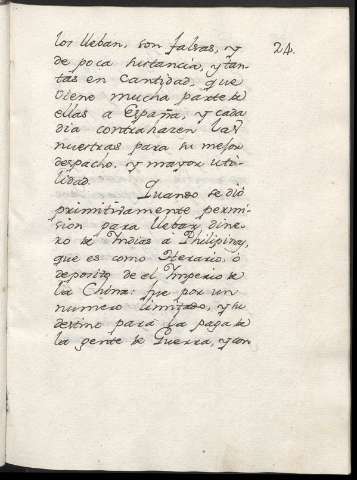 los lleban, son falsas, y 24.
de poca sustancia, y tan-
tas en cantidad, que
viene mucha parte de
ellas a España, y cada
dia contrahazen las
nuestras para su mejor
despacho, y mayor uti-
lidad.
Quando se dió
primitivamente permi-
sion para llebar dine-
ro de Yndias a Philipinas,
que es como Herario, ò
deposito de el Ymperio de
la China: fue por un
numero limitado, y su
destino para la paga de
la gente de Guerra, y con